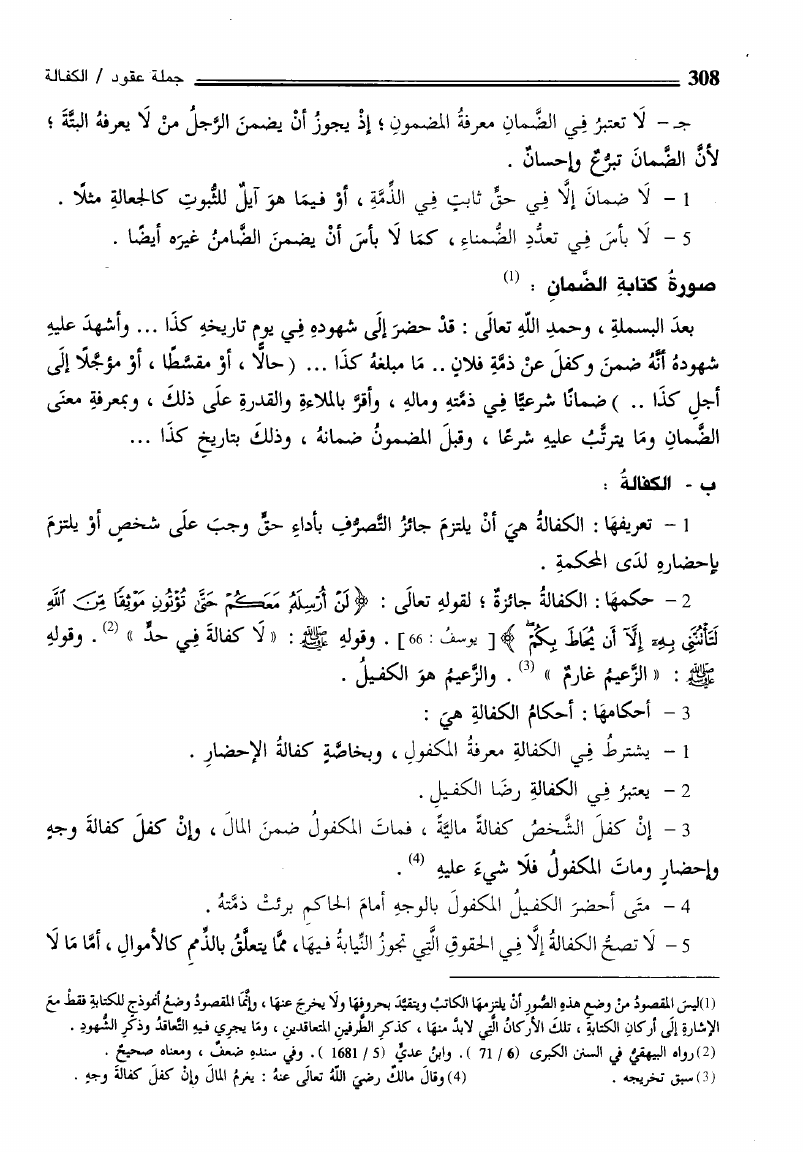 308 جملة عقود / الكفالة
جـ - لَا تعتبرُ فِي الضَّمانِ معرفةُ المضمونِ ؛ إذْ يجوزُ أنْ يضمنَ الرَّجلُ منْ لَا يعرفهُ البتَّةَ ؛
لأنَّ الضَّمانَ تبرُّعٌ وإحسانٌ .
1 - لَا ضمانَ إلَّا فِي حقٍّ ثابتٍ فِي الذِّمَّةِ ، أوْ فيمَا هوَ آيلٌ للثُّبوتِ كالجعالةِ مثلًا .
5 - لَا بأسَ فِي تعدُّدِ الضُّمناءِ ، كمَا لَا بأسَ أنْ يضمنَ الضَّامنُ غيرَه أيضًا .
صورةُ كتابةِ الضَّمانِ : (1)
بعدَ البسملةِ ، وحمدِ اللَّهِ تعالَى : قدْ حضرَ إلَى شهودِهِ فِي يومِ تاريخهِ كذَا ... وأشهدَ عليهِ
شهودهُ أنَّهُ ضمنَ وكفلَ عنْ ذمَّةِ فلانٍ .. مَا مبلغهُ كذَا ... ( حالًّا ، أوْ مقسَّطًا ، أوْ مؤجَّلًا إلَى
أجلِ كذَا .. ) ضمانًا شرعيًّا فِي ذمَّتهِ ومالهِ ، وأقرَّ بالملاءةِ والقدرةِ علَى ذلكَ ، وبمعرفةِ معنَى
الضَّمانِ ومَا يترتَّبُ عليهِ شرعًا ، وقبلَ المضمونُ ضمانهُ ، وذلكَ بتاريخِ كذَا ...
ب - الكفالةُ :
1 - تعريفهَا : الكفالةُ هيَ أنْ يلتزمَ جائزُ التَّصرُّفِ بأداءِ حقٍّ وجبَ علَى شخصٍ أوْ يلتزمَ
بإحضارهِ لدَى المحكمةِ .
2 - حكمهَا : الكفالةُ جائزةٌ ؛ لقولهِ تعالَى : ﴿ لَنْ أُرْسِلَهُۥ مَعَكُمْ حَتَّىٰ تُؤْتُونِ مَوْثِقًا مِّنَ ٱللَّهِ
لَتَأْتُنَّنِى بِهِۦٓ إِلَّآ أَن يُحَاطَ بِكُمْ ﴾ [ يوسفُ : 66 ] . وقولهِ ﷺ : « لَا كفالةَ فِي حدٍّ » (2) . وقولهِ
ﷺ : « الزَّعيمُ غارمٌ » (3) . والزَّعيمُ هوَ الكفيلُ .
3 - أحكامهَا : أحكامُ الكفالةِ هيَ :
1 - يشترطُ فِي الكفالةِ معرفةُ المكفولِ ، وبخاصَّةٍ كفالةُ الإحضارِ .
2 - يعتبرُ فِي الكفالةِ رضَا الكفيلِ .
3 - إنْ كفلَ الشَّخصُ كفالةً ماليَّةً ، فماتَ المكفولُ ضمنَ المالَ ، وإنْ كفلَ كفالةَ وجهٍ
وإحضارٍ وماتَ المكفولُ فلَا شيءَ عليهِ (4) .
4 - متَى أحضرَ الكفيلُ المكفولَ بالوجهِ أمامَ الحاكمِ برئتْ ذمَّتهُ .
5 - لَا تصحُّ الكفالةُ إلَّا فِي الحقوقِ الَّتِي تجوزُ النِّيابةُ فيهَا، ممَّا يتعلَّقُ بالذِّممِ كالأموالِ ، أمَّا مَا لَا
(1) ليسَ المقصودُ منْ وضعِ هذهِ الصُّورِ أنْ يلتزمهَا الكاتبُ ويتقيَّدَ بحروفهَا ولَا يخرجَ عنهَا ، وإنَّمَا المقصودُ وضعُ أنموذجٍ للكتابةِ فقطْ معَ
الإشارةِ إلَى أركانِ الكتابةِ ، تلكَ الأركانُ الَّتِي لابدَّ منهَا ، كذكرِ الطَّرفينِ المتعاقدينِ ، ومَا يجرِي فيهِ التَّعاقدُ وذكرِ الشُّهودِ .
(2) رواه البيهقيُّ في السنن الكبرى ( 6 / 71 ) . وابنُ عديٍّ ( 5 / 1681 ) . وفي سندهِ ضعفٌ ، ومعناه صحيحٌ .
(3) سبق تخريجه . (4) وقالَ مالكٌ رضيَ اللَّهُ تعالَى عنهُ : يغرمُ المالَ وإنْ كفلَ كفالةَ وجهٍ .